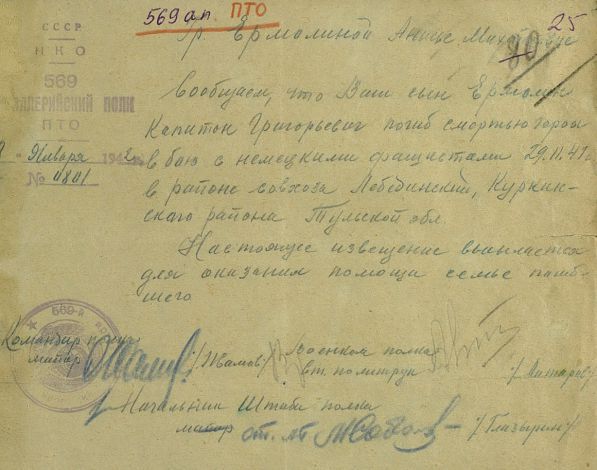 569 ап. ПТО
25
СССР
НКО
569
ЛЕРИЙСКИЙ ПОЛК
ПТО
Января 1942
№ 0801
Гр. Ермолиной Анне
90
Сообщаем, что Ваш сын Ермолин
Капитон Григорьевич погиб смертью героя
в бою с немецкими фашистами 29.11.41г.
в районе совхоза Лебединский, Куркин-
ского района Тульской обл.
Настоящее извещение высылается
для оказания помощи семье погиб-
шего
569-й
Командир полка
майор /Иванов/
Военком полка
ст. политрук
Начальник Штаба полка
майор ст. лт /Глазырин/